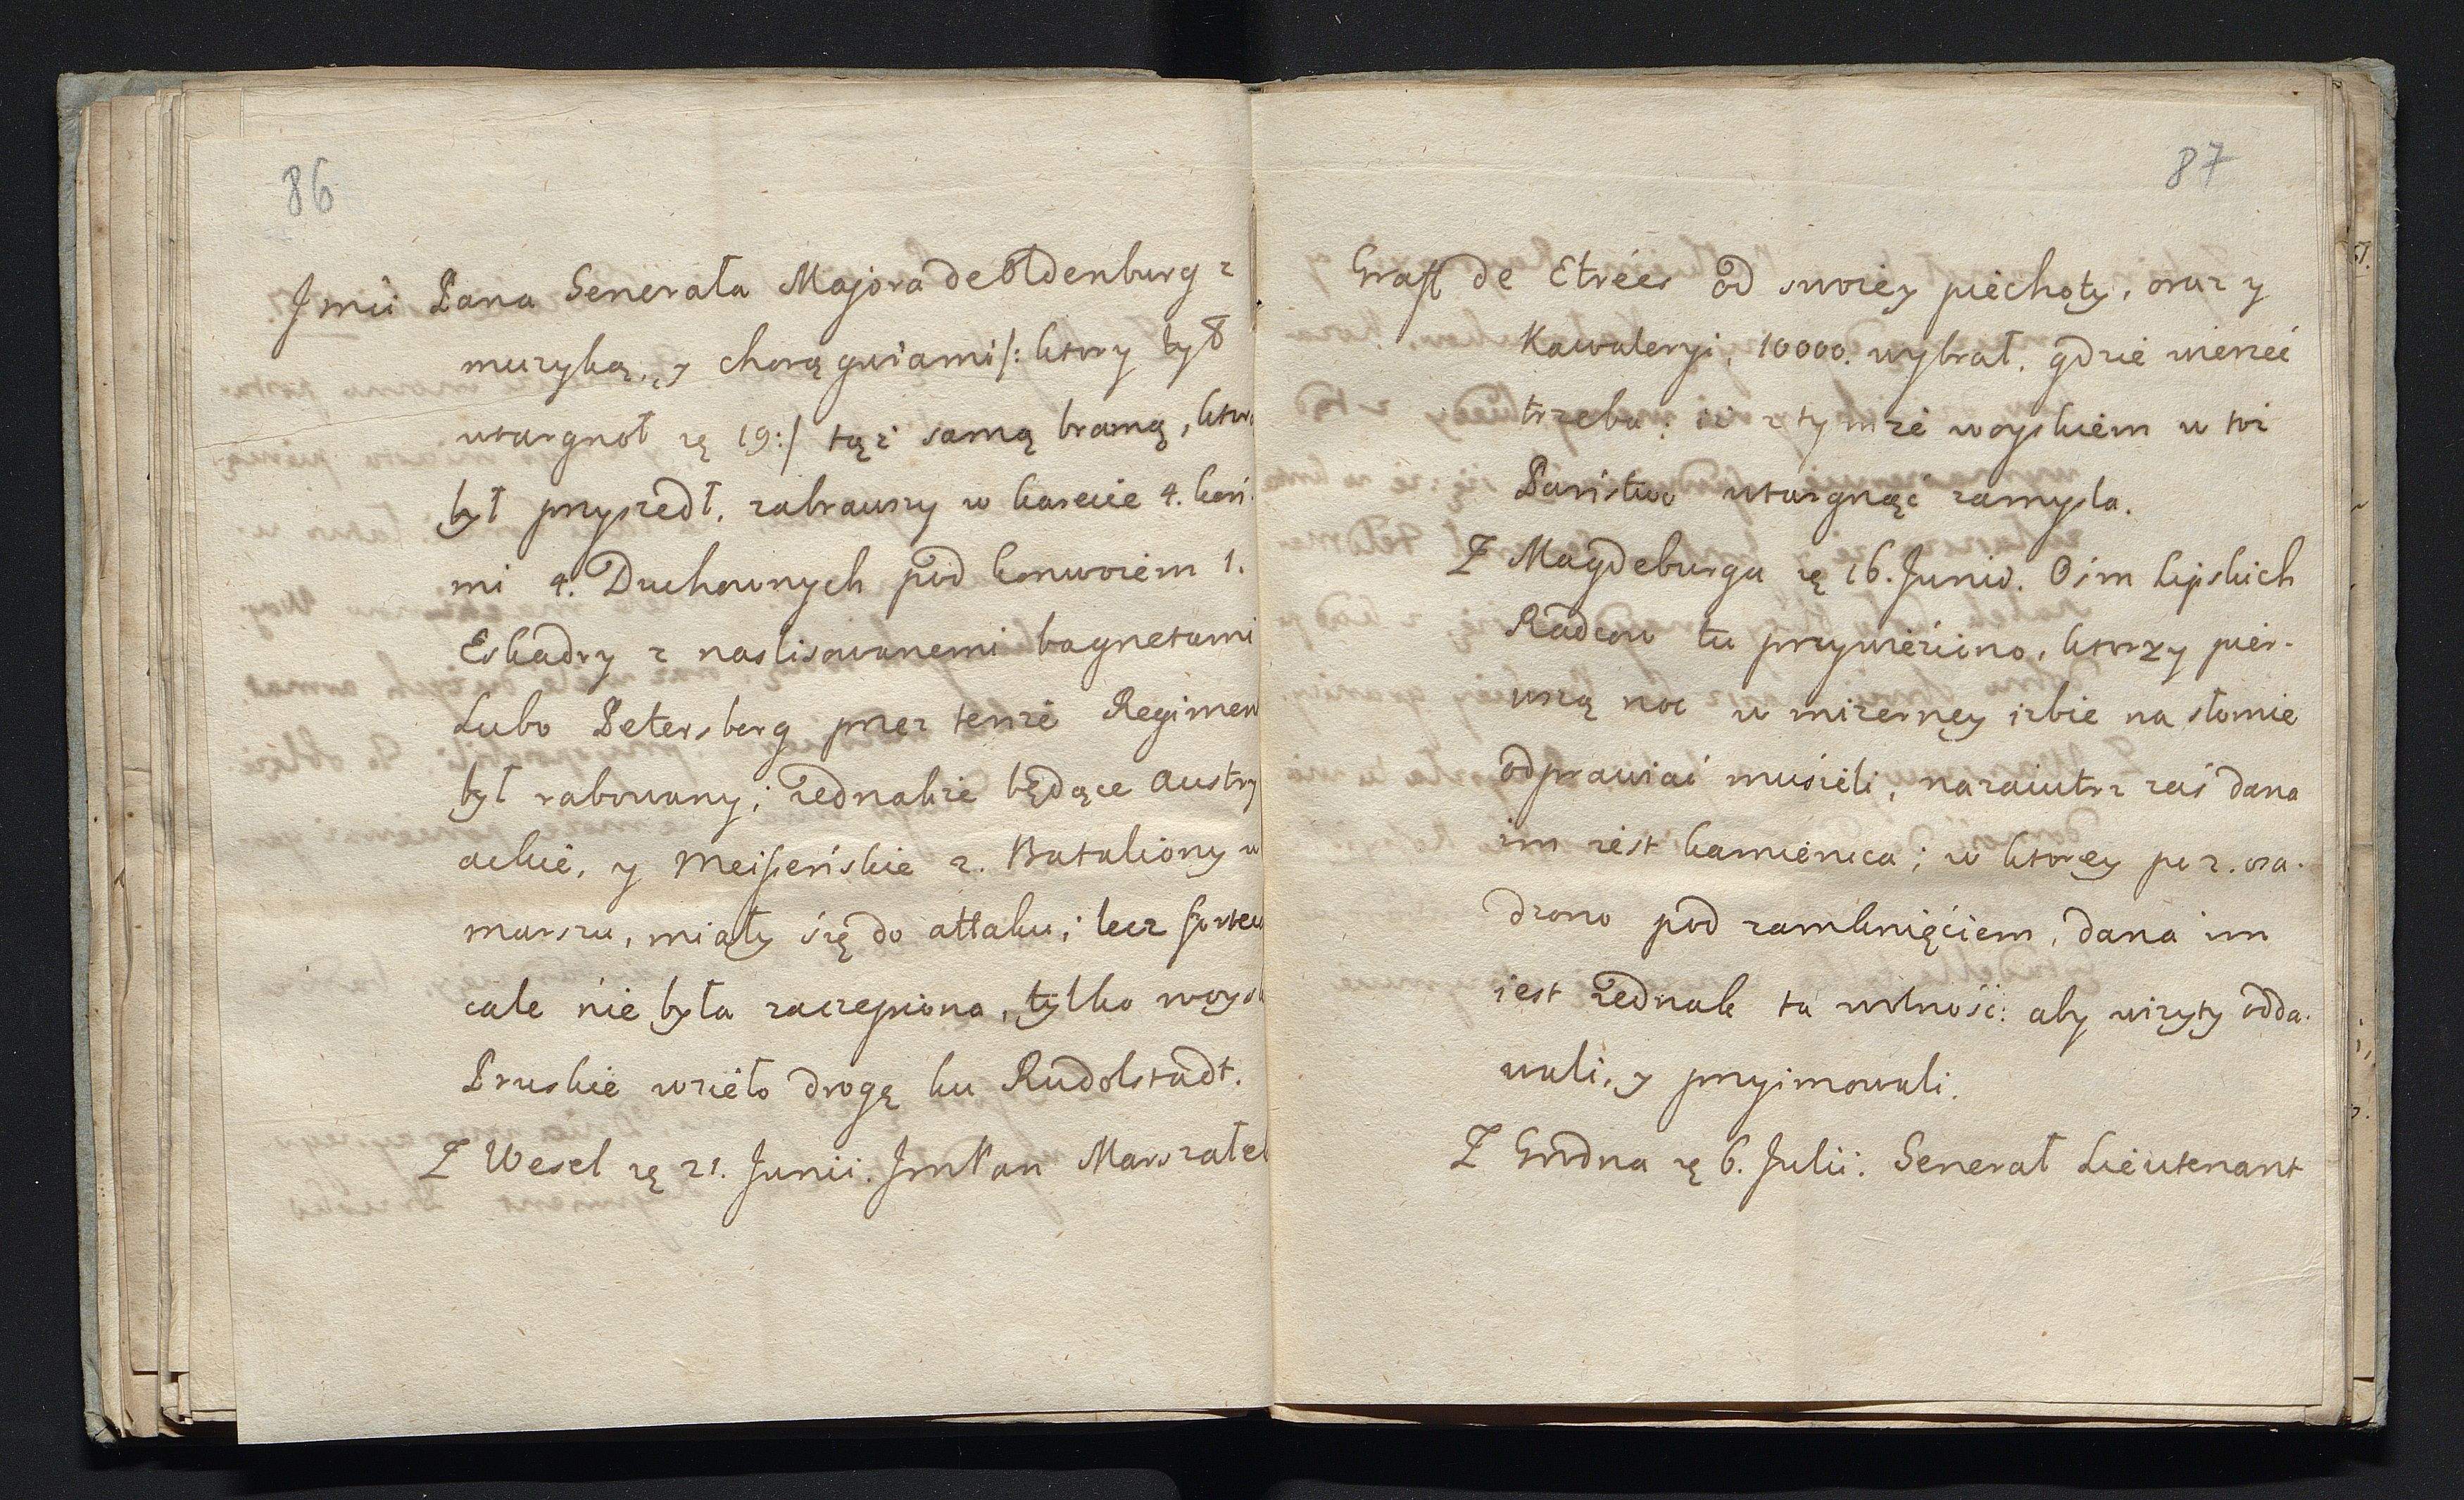 86
Jmci Pana Generała Majora de Oldenburg z
muzyką, y chorągwiami /: ktory tyż
wtargnoł 19 :/ tąż samą bramą,
był przyszedł, zabrawszy w karecie 4. koń.
mi 4. Duchownych pod konwoiem 1.
Eskadry z naslisowanemi bagnetami
Lubo Petersberg przez tenże Regimen
był rabowany; iednakże będące Austry
ackie, y Meisseńskie 2. Bataliony w
marszu, miały się do attaku; lecz fortec
cale nie była zaczepiona, tylko woysk
Pruskie wzieło drogę ku Rudolstadt.
Z Wesel 21. Junii. JmPan Marszałek
87
Graff de Etrées od swoiey piechoty, oraz y
Kawaleryi, 10000. wybrał. gdzie wierzeć
trzeba; iż z tymże woyskiem w toż
Państwo wtargnąć zamysla.
Z Magdeburga 16. Junio. Ośm Lipskich
Radcow tu przywieziono, ktorzy pier-
wszą noc w mizerney izbie na słomie
odprawiać musieli, nazaiutrz zaś dana
im iest kamienica; w ktorey po 2. osa-
dzono pod zamknięciem, dana im
iest iednak ta wolność: aby wizyty odda-
wali, y przyimowali.
Z Grodna 6. Julii. Generał Lieutenant